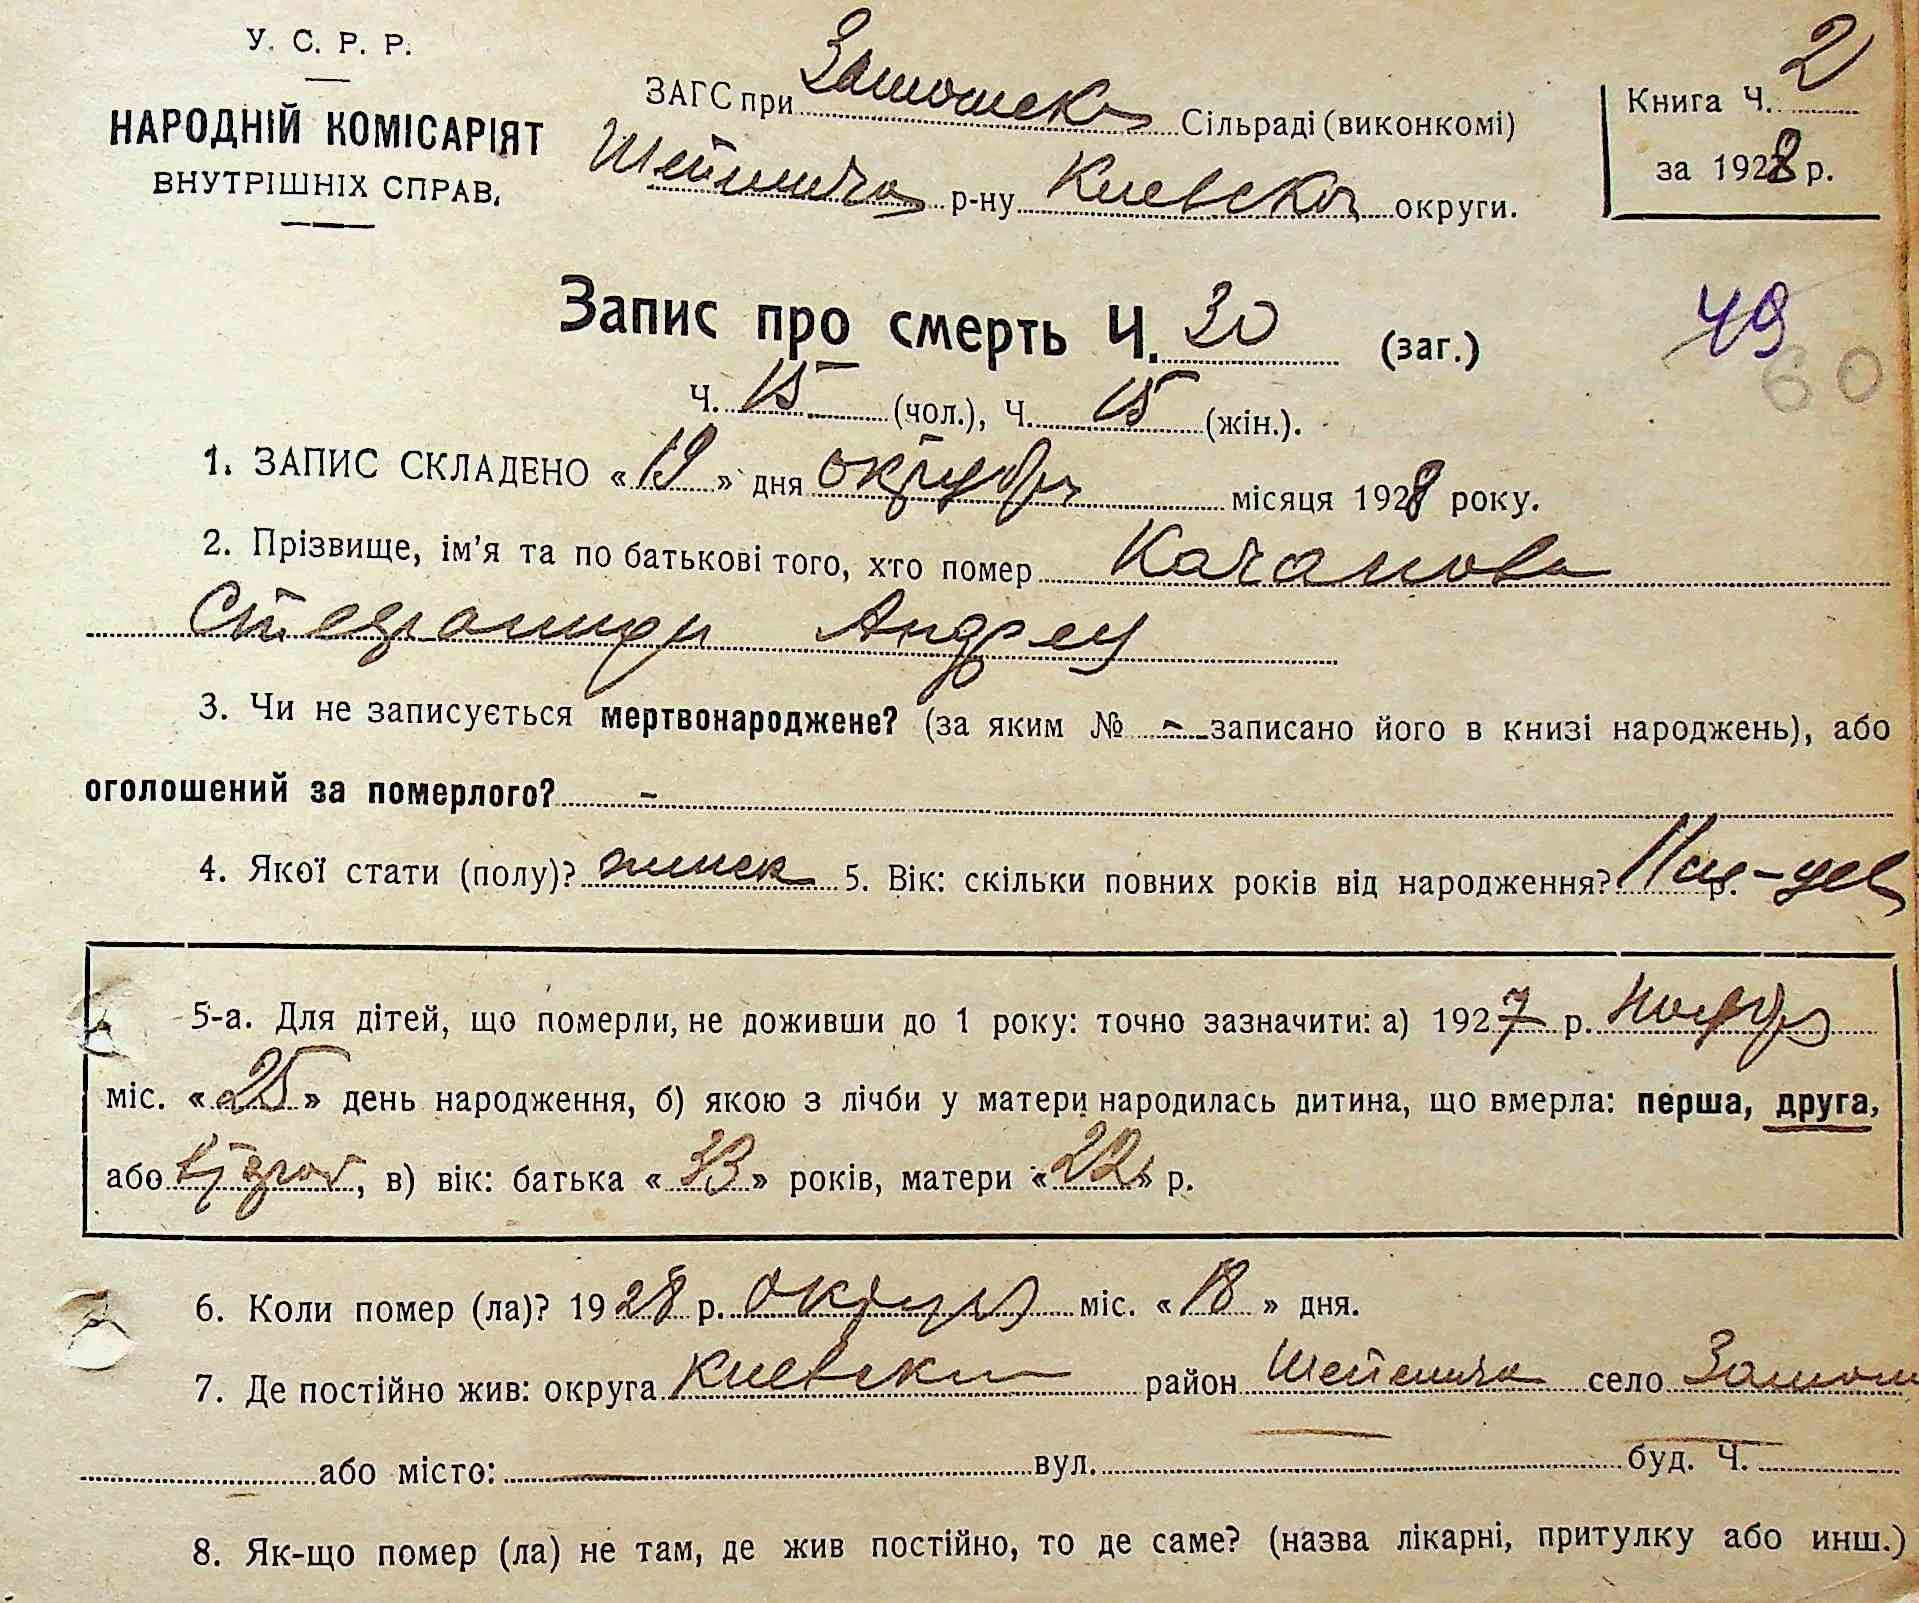 У. С. Р. Р.
НАРОДНІЙ КОМІСАРІЯТ
ВНУТРІШНІХ СПРАВ.
ЗАГС при Замошск Сільраді (виконкомі)
р-ну Киевской округи.
Книга Ч. 2
за 1928 р.
Запис про смерть Ч. 30 (заг.)
49
60
Ч. 15 (чол.), Ч. 15 (жін.).
1. ЗАПИС СКЛАДЕНО «19» дня октября місяця 1928 року.
2. Прізвище, ім'я та по батькові того, хто помер Качанова
Степанида Андрее
3. Чи не записується мертвонароджене? (за яким № - записано його в книзі народжень), або
оголошений за померлого? -
4. Якої стати (полу)? женск 5. Вік: скільки повних років від народження? р.
5-а. Для дітей, що померли, не доживши до 1 року: точно зазначити: а) 1927 р. ноябр
міс. «25» день народження, б) якою з лічби у матери народилась дитина, що вмерла: перша, друга,
або второй, в) вік: батька «33» років, матери «22» р.
6. Коли помер (ла)? 1928 р. октября міс. «18» дня.
7. Де постійно жив: округа Киевска район село Замош
або місто: вул. буд. Ч.
8. Як-що помер (ла) не там, де жив постійно, то де саме? (назва лікарні, притулку або инш.)